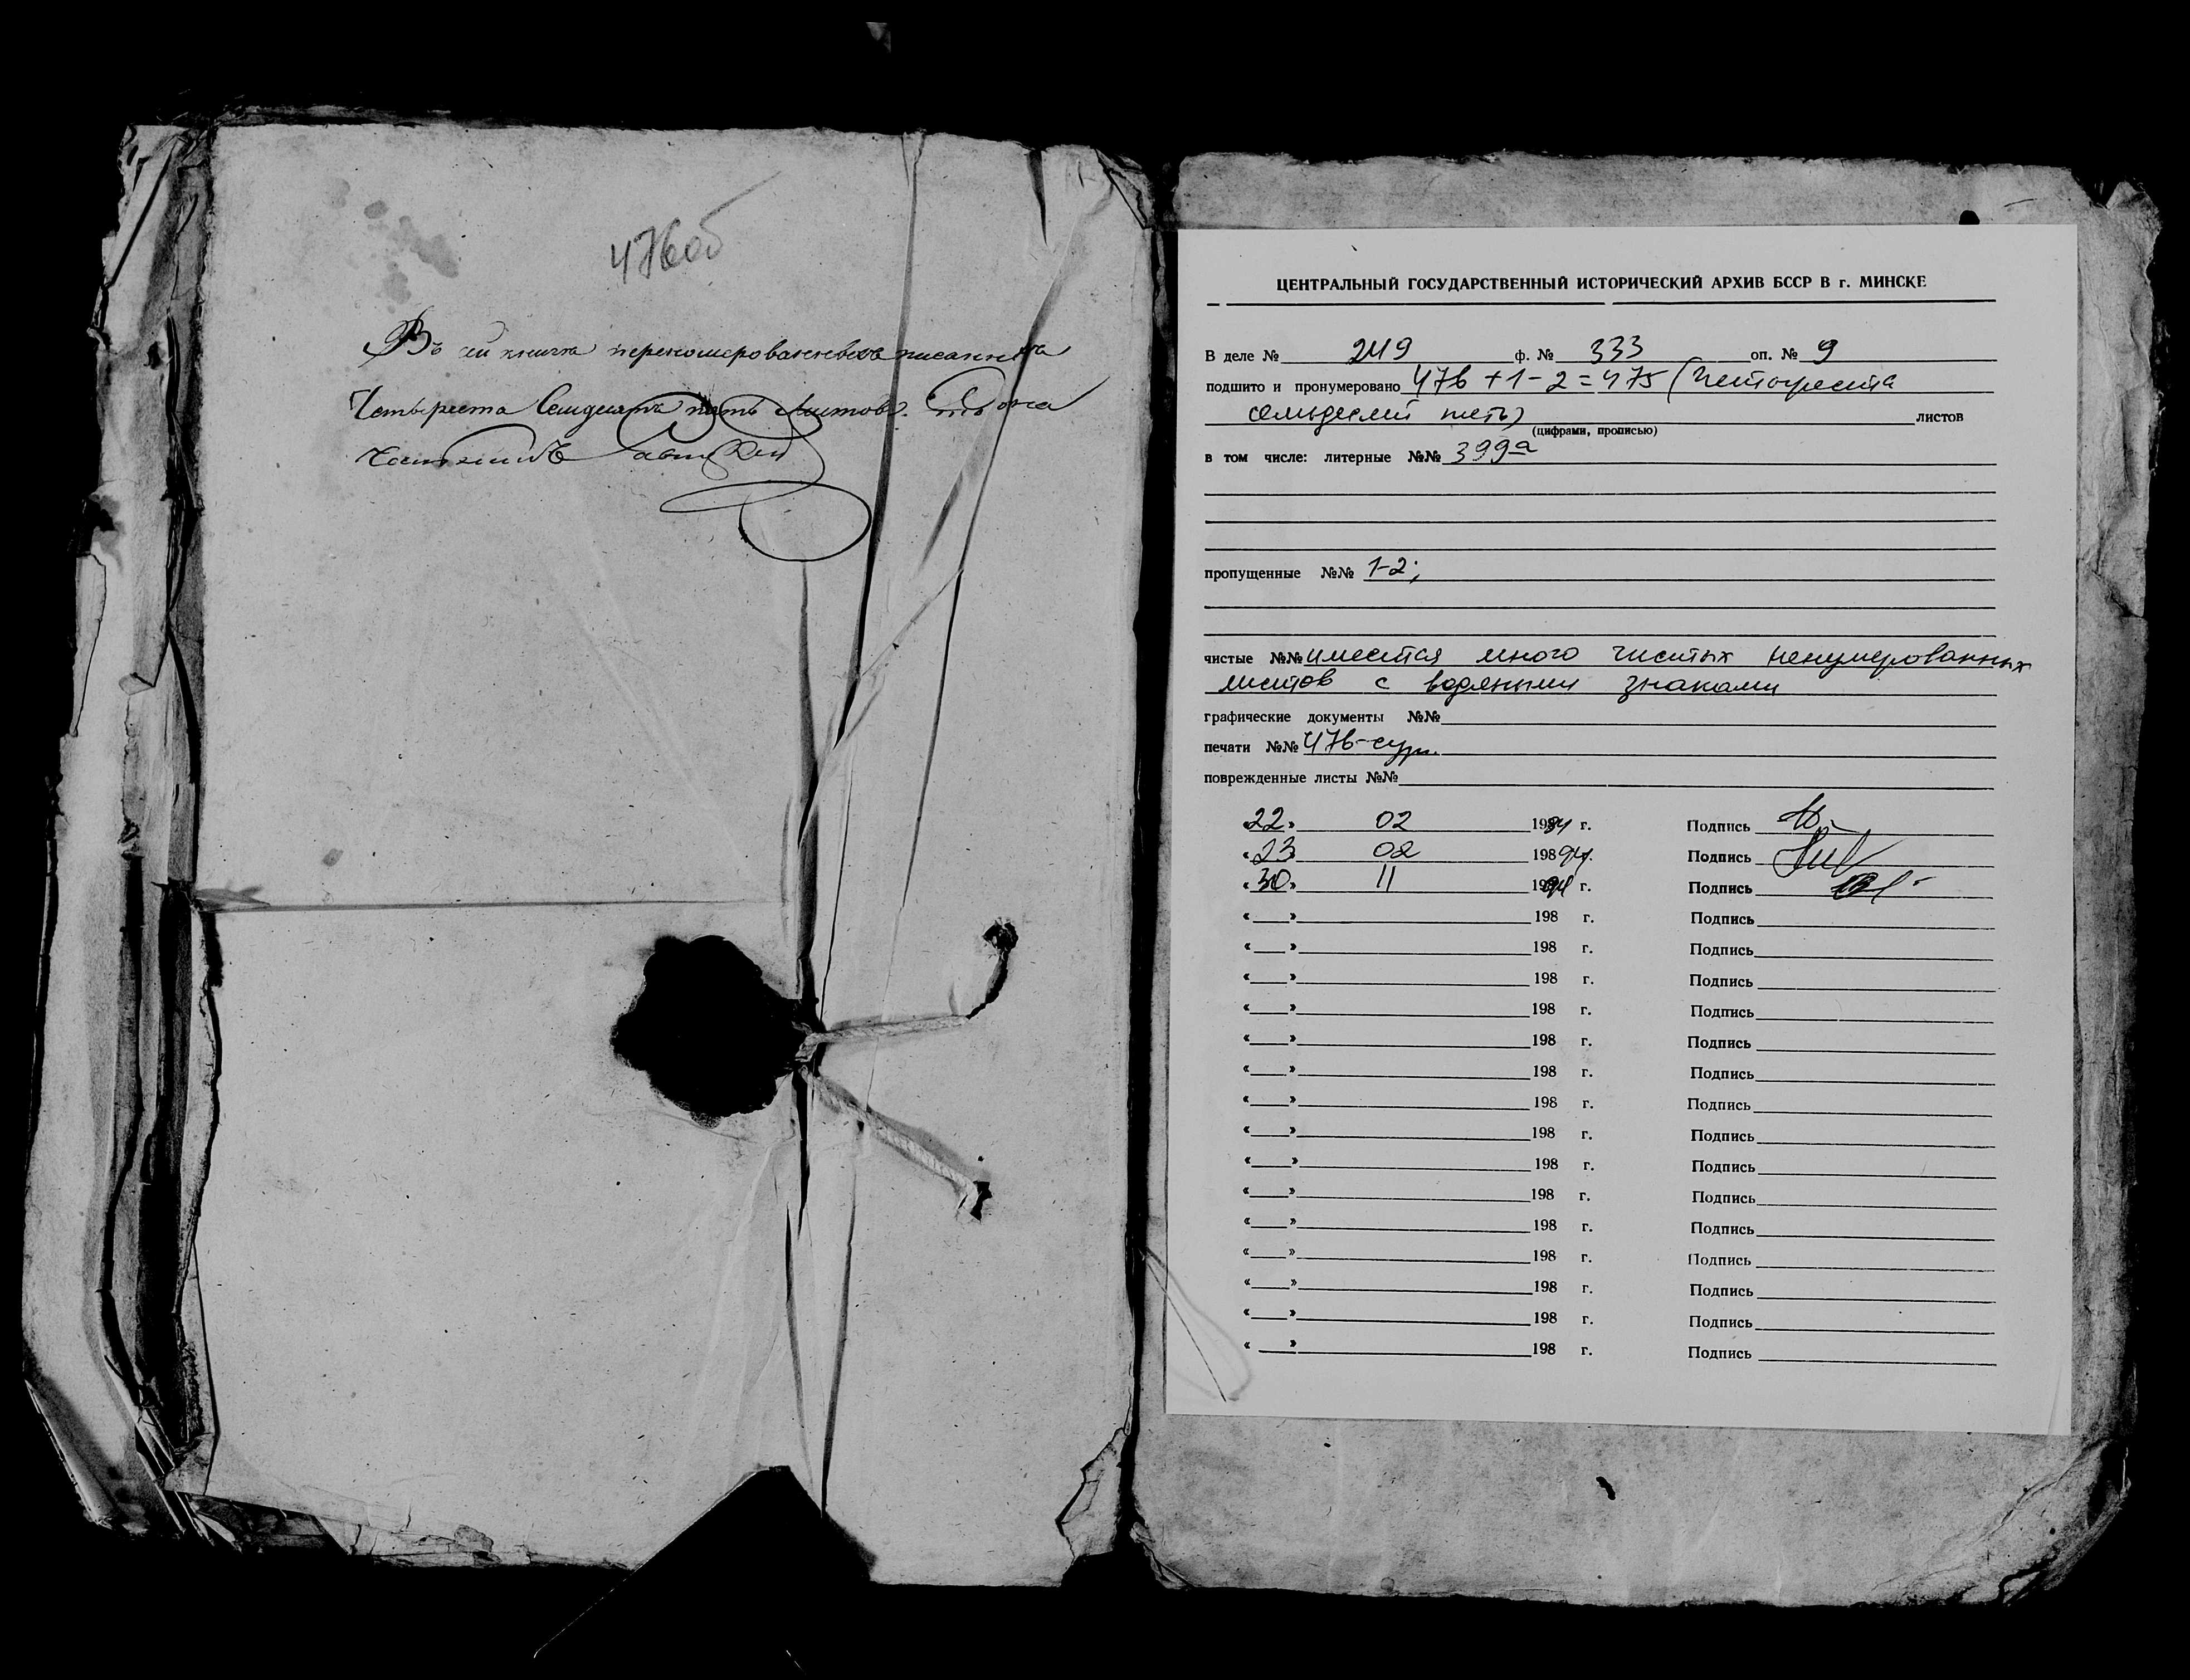 476об
Въ сей книга перенумерованныхъ писанныхъ
Четыреста Семдесятъ пять листовъ.
ЦЕНТРАЛЬНЫЙ ГОСУДАРСТВЕННЫЙ ИСТОРИЧЕСКИЙ АРХИВ БССР В г. МИНСКЕ
В деле № 249 ф. № 333 оп. № 9
подшито и пронумеровано 476 + 1 - 2 = 475 (четыреста
семьдесят пять) листов
(цифрами, прописью)
в том числе: литерные №№ 399а
пропущенные №№ 1-2;
чистые №№ имеется много чистых ненумерованных
листов с водяными знаками
графические документы №№
печати №№ 476-сург.
поврежденные листы №№
«22» 02 1994 г. Подпись
«23» 02 198 94г. Подпись
«30» 11 1994 г. Подпись
«___» 198 г. Подпись
«___» 198 г. Подпись
«___» 198 г. Подпись
«___» 198 г. Подпись
«___» 198 г. Подпись
«___» 198 г. Подпись
«___» 198 г. Подпись
«___» 198 г. Подпись
«___» 198 г. Подпись
«___» 198 г. Подпись
«___» 198 г. Подпись
«___» 198 г. Подпись
«___» 198 г. Подпись
«___» 198 г. Подпись
«___» 198 г. Подпись